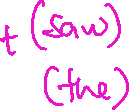 + (saw)
(the)